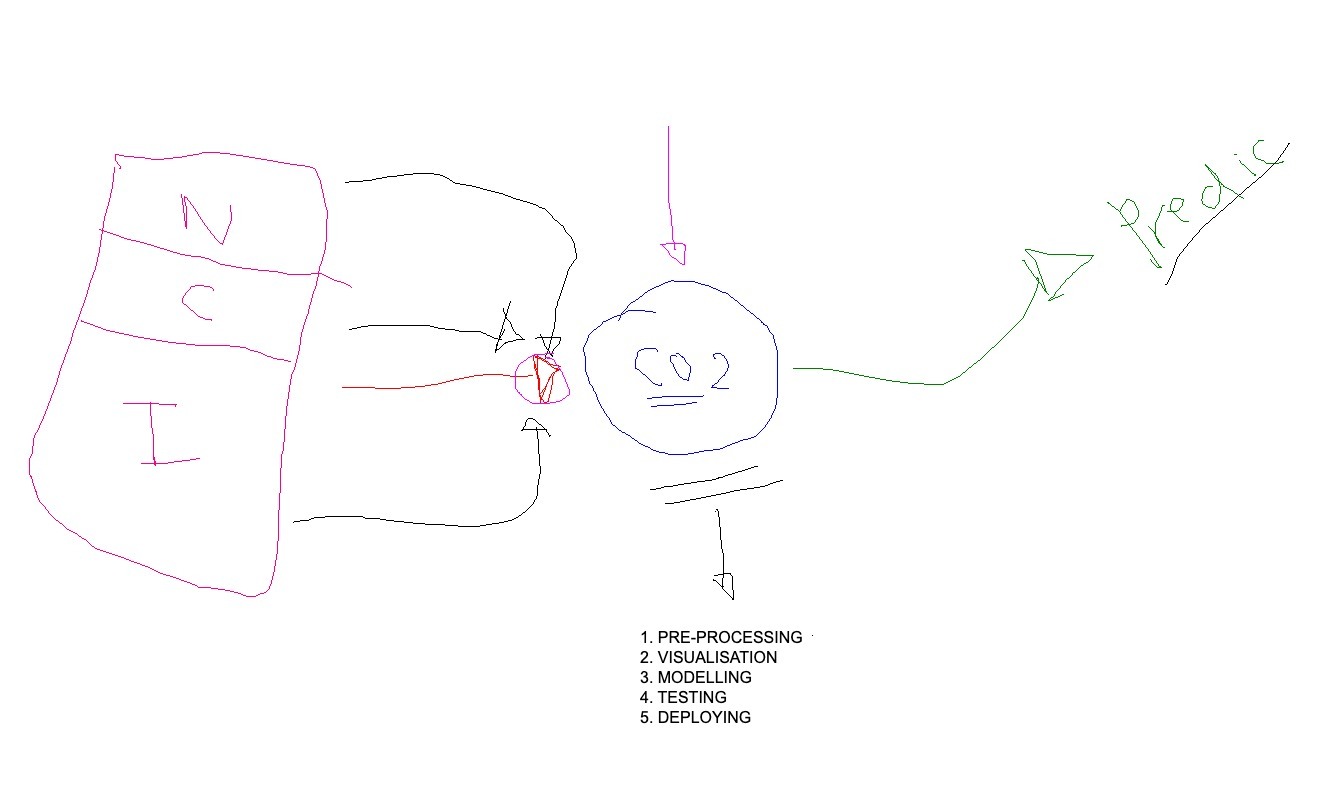 N
C
I
CO2
Predic
1. PRE-PROCESSING
2. VISUALISATION
3. MODELLING
4. TESTING
5. DEPLOYING